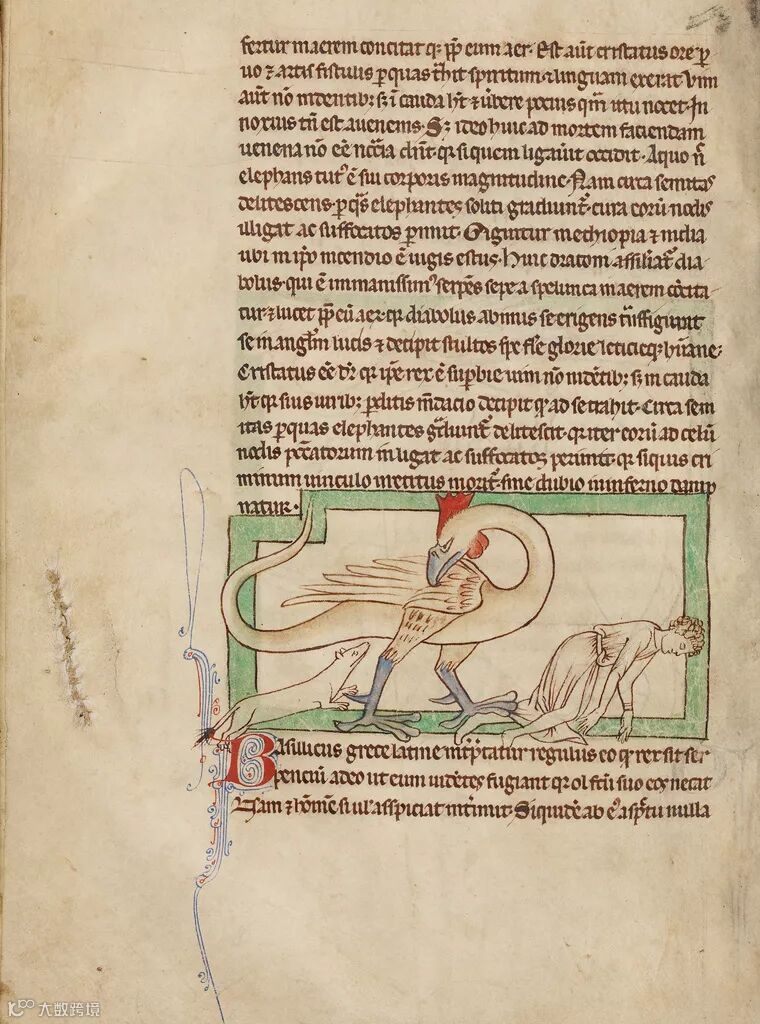 fertur in aerem concitat᷑ q̄ ꝓp̄ eum aer. Est aūt cristatus ore ꝑ
uo ⁊ artis fistulis ꝑ quas t̄hit spiritum ⁊ linguam exerat. Vim
aūt nō in dentibꝫ sꝫ ī cauda h̄t ⁊ ūbere pocius qm̄ ictu nocet. In
noxius tn̄ est a uenenis. Sꝫ ideo huic ad mortem faciendam
uenena nō eē nccīa dnt̄ qr̄ si quem ligauit occidit. A quo n̄
elephans tutꝰ ē sui corporis magnitudine. Nam circa semitas
delitescens. ꝑ q̄s elephantes soliti gradiunt᷑. crura eoꝝ nodis
illigat ac suffocatos ꝑimit. Gignitur in ethiopia ⁊ india
ubi in ip̄o incendio ē iugis estus. Huic draconi assiliat᷑ dia
bolus. qui ē immanissimꝰ serpēs sepe a spelunca in aerem cōcita
tur ⁊ lucet ꝓp̄ eū aer. qr̄ diabolus ab imis se erigens t̄nsfigurat
se in angl̄m lucis ⁊ decipit stultos spe fl̄se glorie leticieqꝫ hūane.
Cristatus eē dr̄ qr̄ ip̄e rex ē suꝑbie uim nō in dētibꝫ. sꝫ in cauda
h̄t qr̄ suis uiribꝫ ꝑditis mdacio decipit q̄s ad se trahit. Circa sem
itas ꝑ quas elephantes gdiunt᷑ delitescit. qr̄ iter eoꝝ ad celū
nodis pcc̄atorum inligat ac suffocatos ꝑerimit. qr̄ siquis cri
minum uinculo irretitus morit᷑ sine dubio in inferno damp
natur.
Basiliscus grece latine int̄p̄tatur regulus eo qr̄ rex sit ser
pentiū adeo ut eum uidētes fugiant qr̄ olf̄tu suo eos necat
Nam ⁊ hōīēm si ul̄ aspiciat int̄imit. Siquidē ab eiꝰ asp̄tu nulla
大数跨境